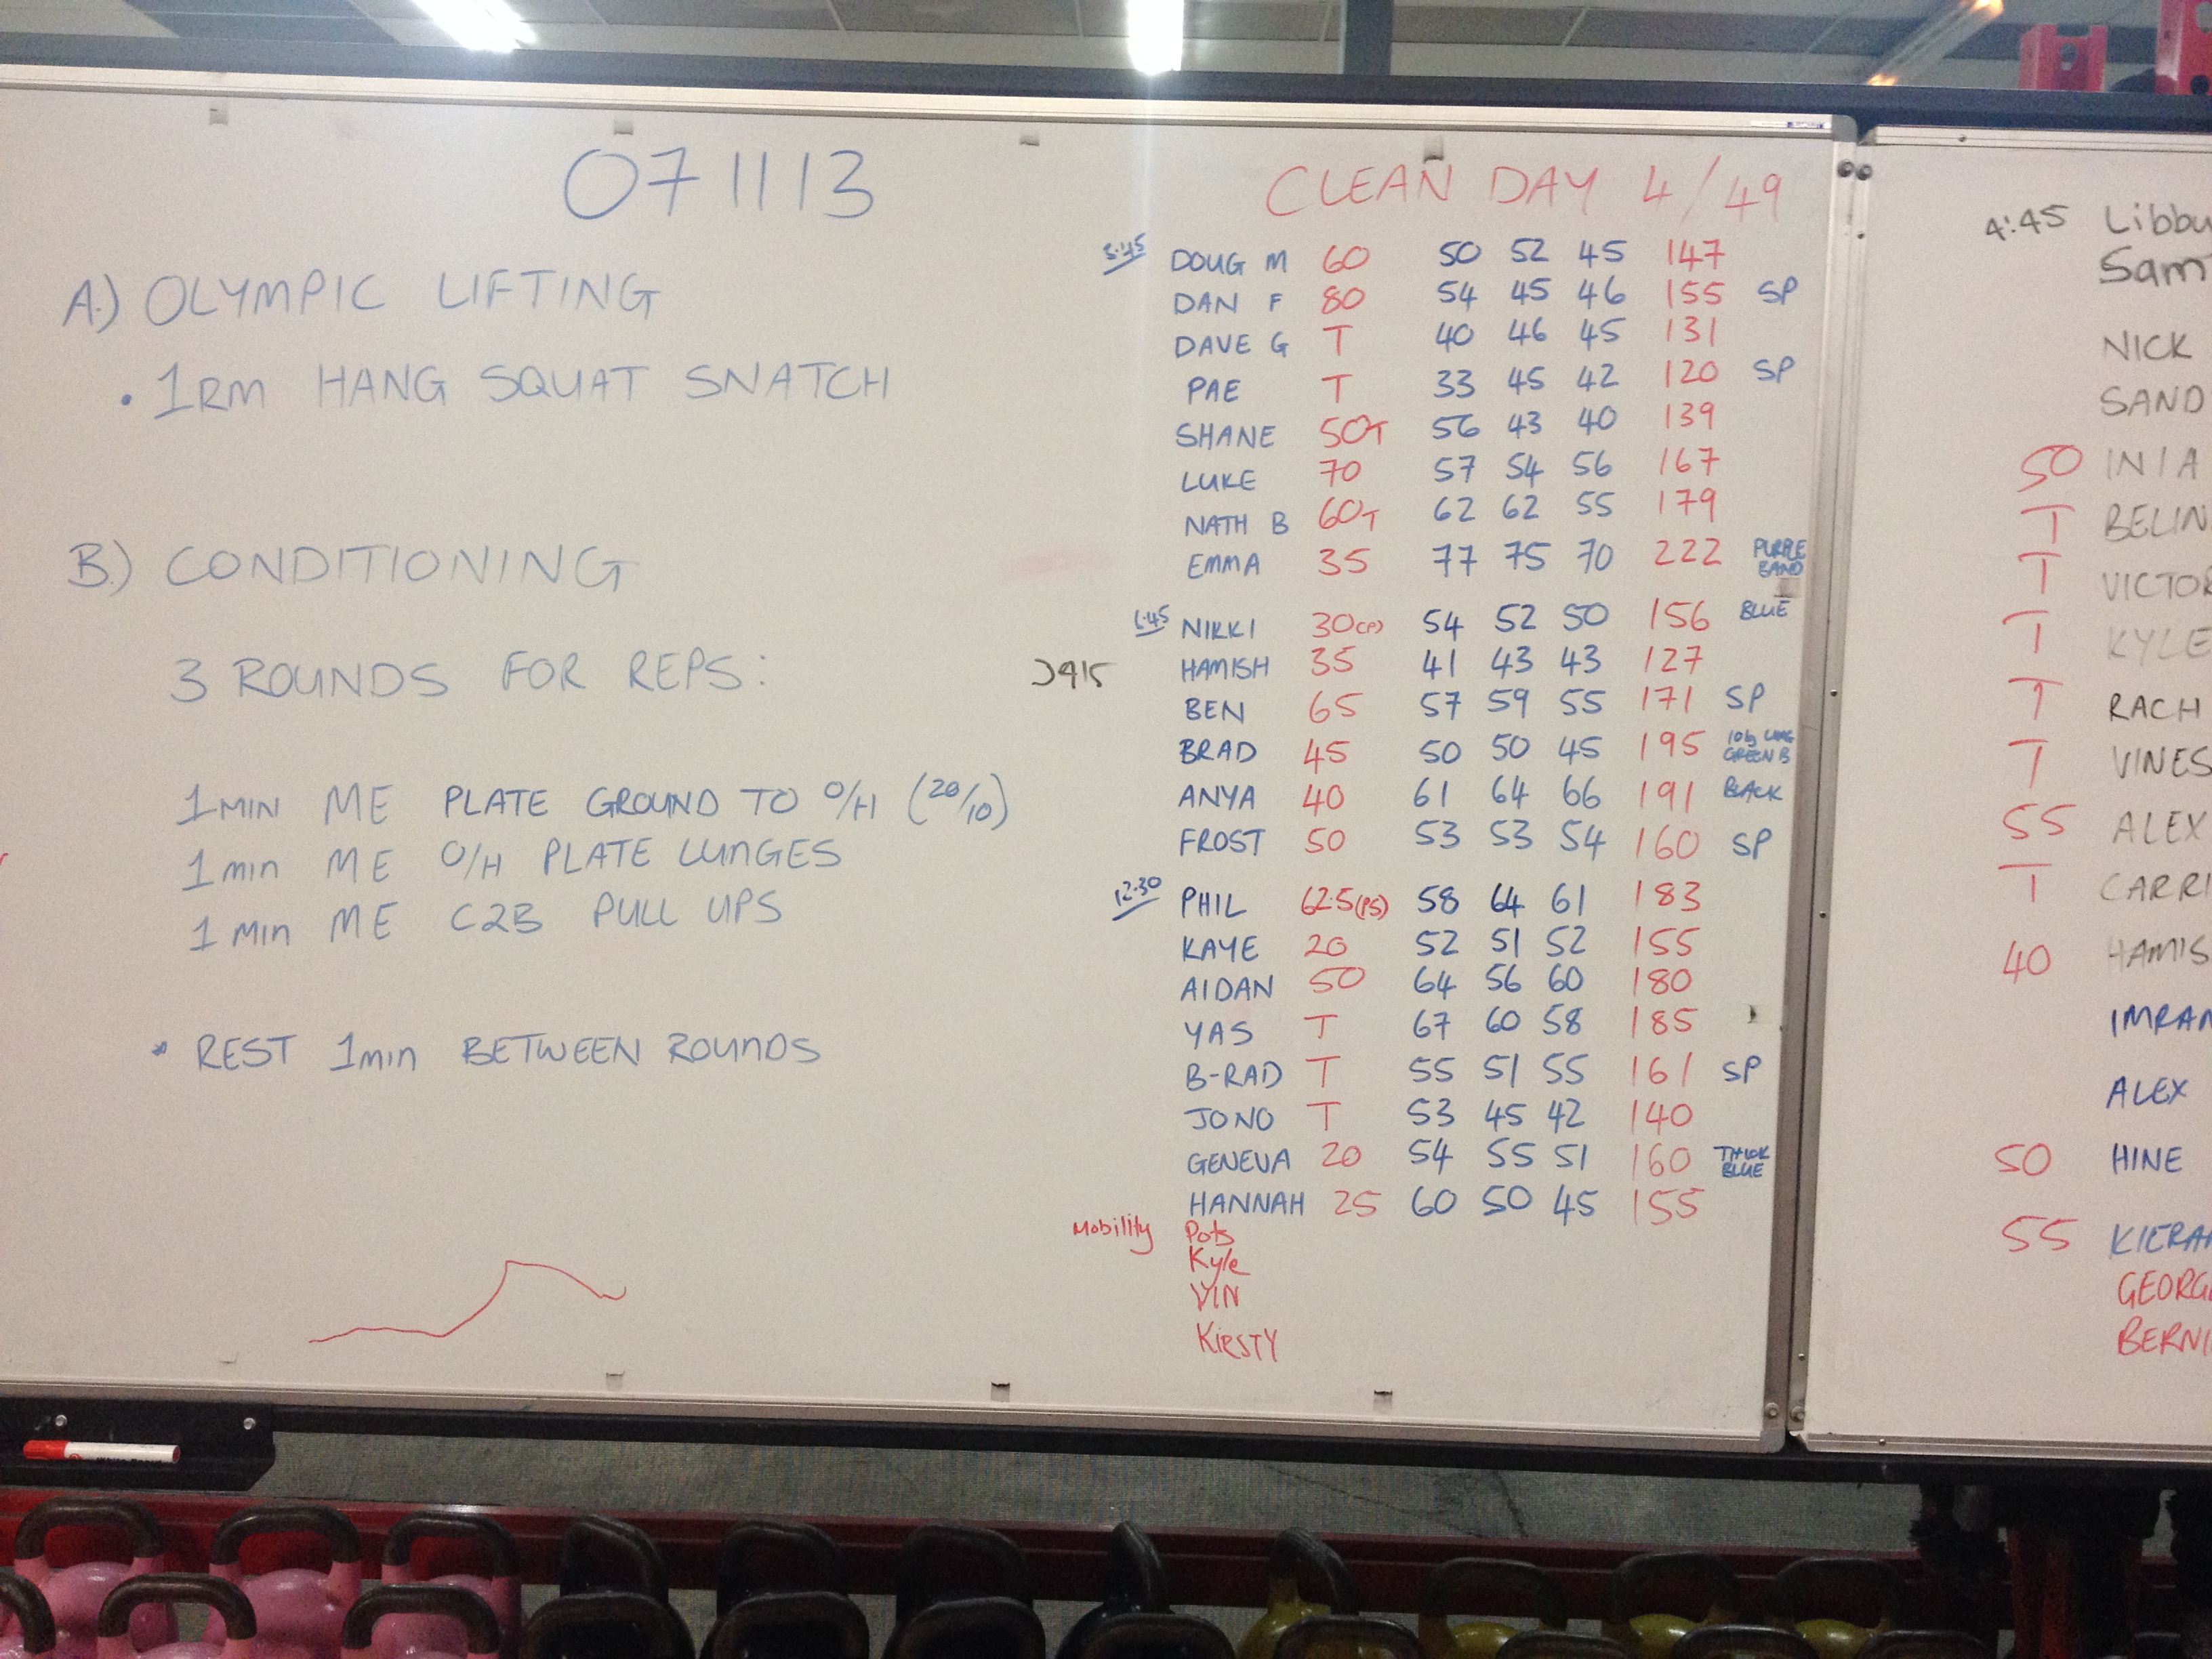 071113
A.) OLYMPIC LIFTING
• 1RM HANG SQUAT SNATCH
B.) CONDITIONING
3 ROUNDS FOR REPS:
1MIN ME PLATE GROUND TO O/H (20/10)
1min ME O/H PLATE LUNGES
1min ME C2B PULL UPS
* REST 1min BETWEEN ROUNDS
CLEAN DAY 4/49
5:45 DOUG M 60 50 52 45 147
DAN F 80 54 45 46 155 SP
DAVE G T 40 46 45 131
PAE T 33 45 42 120 SP
SHANE 50T 56 43 40 139
LUKE 70 57 54 56 167
NATH B 60T 62 62 55 179
EMMA 35 77 75 70 222 PURPLE BAND
6:45 NIKKI 30(P) 54 52 50 156 BLUE
HAMISH 35 41 43 43 127
BEN 65 57 59 55 171 SP
BRAD 45 50 50 45 195 GREEN B
ANYA 40 61 64 66 191 BLACK
FROST 50 53 53 54 160 SP
12:30 PHIL 62.5(PS) 58 64 61 183
KAYE 20 52 51 52 155
AIDAN 50 64 56 60 180
YAS T 67 60 58 185
B-RAD T 55 51 55 161 SP
JONO T 53 45 42 140
GENEVA 20 54 55 51 160 THICK BLUE
HANNAH 25 60 50 45 155
Mobility Pots
Kyle
VIN
KIRSTY
4:45 Libby
Sam
NICK
SAND
50 INIA
T BELIN
T VICTOR
T KYLE
T RACH
T VINES
55 ALEX
T CARRI
40 HAMIS
IMRAN
ALEX
50 HINE
55 KIERA
GEORG
BERNI